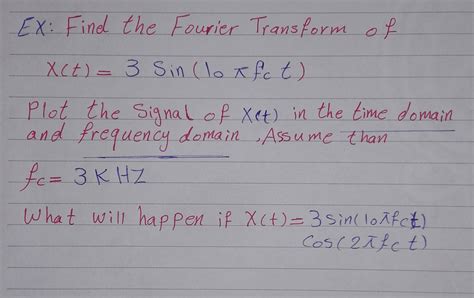 EX: Find the Fourier Transform of
X(t) = 3 Sin (10 π fc t)
Plot the Signal of X(t) in the time domain
and frequency domain, Assume than
fc = 3 K HZ
What will happen if X(t) = 3 sin(10πfct)
Cos(2πfc t)